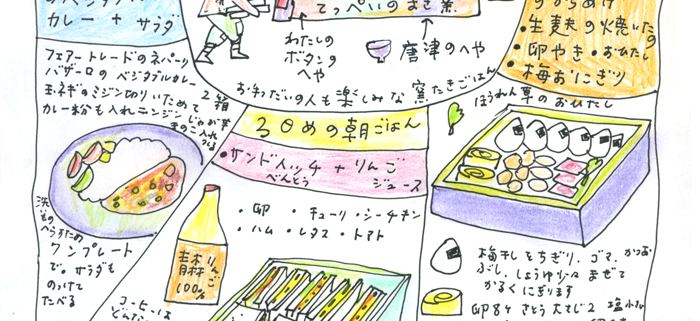 カレー + サラダ
フェアートレードのネパーリ
バザーロの ベジタブルカレー
2箱
玉ネギのミジン切りいためて
カレー粉も入れニンジン じゃが芋
きのこ入れ
つくる
洗い
ものを
へらすため
ワンプレート
で。サラダも
のっけて
たべる
てっぺいのまき窯
わたしの
ボタンの
へや
唐津のへや
お手つだいの人も楽しみな窯たきごはん
3日めの朝ごはん
・サンドイッチ + りんご
べんとう
ジュース
・卵 ・キューリ・シーチキン
・ハム ・レタス・トマト
青森りんご
100%
コーヒーは
・生麩の焼いたの
・卵やき・おひたし
・梅おにぎり
ほうれん草のおひたし
梅干しをちぎり、ゴマ、かつお
ぶし、しょうゆ少々まぜて
かるくにぎります
卵8ケ さとう大さじ2 塩小さじ